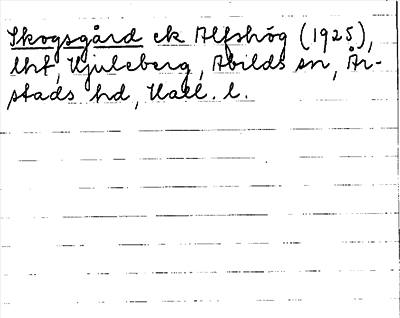 Skogsgård ek Alfshög (1925),
lht, Hjuleberg, Abilds sn, År-
stads hd, Hall. l.